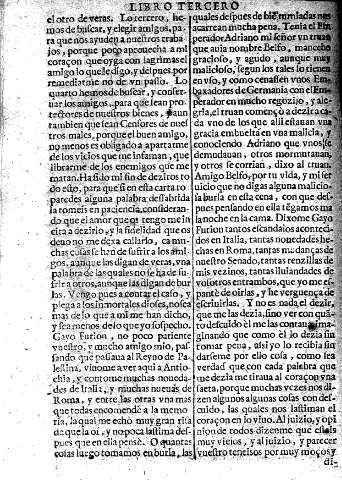 LIBRO TERCERO
el otro de veras. Lo tercero, he-
mos de buscar, y elegir amigos, pa-
ra que nos ayuden a nuestros traba-
jos, porque poco aprouecha a mi
coraçon que oyga con lagrimas el
amigo lo que le digo, y despues por
remediarme no de vn passo. Lo
quarto hemos de buscar, y conser-
uar los amigos, para que sean pro-
tectores de nuestros bienes, y aun
tambien que sean Censores de nues-
tros males, porque el buen amigo,
no menos es obligado a apartarme
de los vicios que me infaman, que
librarme de los enemigos que me
matan. Ha sido mi fin de deziros to-
do esto, para que si en esta carta to-
paredes alguna palabra dessabrida
la tomeis en paciencia, consideran-
do que el amor que os tengo me in-
cita a dezirlo, y la fidelidad que os
deuo no me dexa callarlo, ca mu-
chas cosas se han de sufrir a los ami-
gos, aunque las digan de veras, vna
palabra de las quales no se ha de su-
frir a otros, aunque las digan de bur-
las. Vengo pues a contar el caso, y
plega a los inmortales dioses, no sea
mas de lo que a mi me han dicho,
y sea menos de lo que yo sospecho.
Gayo Furion, no poco pariente
vuestro, y mucho amigo mio, pas-
sando que passaua al Reyno de Pa-
lestina, vinome a ver aqui a Antio-
chia, y contome muchas noueda-
des de Italia, y muchas nueuas de
Roma, y entre las otras vna mas
que todas encomendè a la memo-
ria, la qual me echò muy gran risa
de que la oì, y no poca lastima des-
pues que en ella pensè. O quantas
cosas luego tomamos en burla, las
quales despues de bien miradas nos
acarrean mucha pena. Tenia el Em-
perador Adriano mi señor vn truan
que auia nombre Belfo, mancebo
gracioso, y agudo, aunque muy
malicioso, segun los tales lo tienen
en vso, y como cenassen vnos Em-
baxadores de Germania con el Em-
perador en mucho regozijo, y ale-
gria, el truan començò a dezir a ca-
da vno de los que alli estauan vna
gracia embuelta en vna malicia, y
conociendo Adriano que vnos se
demudauan, otros mormurauan,
y otros se corrian, dixo al truan,
Amigo Belfo, por tu vida, y mi ser
uicio que no digas alguna malicio-
sa burla en esta cena, con que des-
pues pensando en ella tẽgamos ma
la noche en la cama. Dixome Gayo
Furion tantos escandalos aconteci-
dos en Italia, tantas nouedades he-
chas en Roma, tantas mudanças de
nuestro Senado, tantas renzillas de
mis vezinos, tantas liuiandades de
vosotros entrambos, que yo me es-
pantè de oirlas, y he verguença de
escriuirlas. Y no es nada el dezir,
que me las dezia, sino ver con quã-
to descuido èl me las contaua, ima-
ginando que como èl lo dezia sin
tomar pena, assi yo lo recibia sin
darseme por ello cosa, como sea
verdad que con cada palabra que
me dezia me tiraua al coraçon vna
saeta, porque muchas vezes nos di-
zen algunos algunas cosas con des-
cuido, las quales nos lastiman el
coraçon en lo viuo. Al juizio, y opi-
nion de todos dizenme que estais
muy viejos, y al juizio, y parecer
vuestro teneisos por muy moços, y
di-